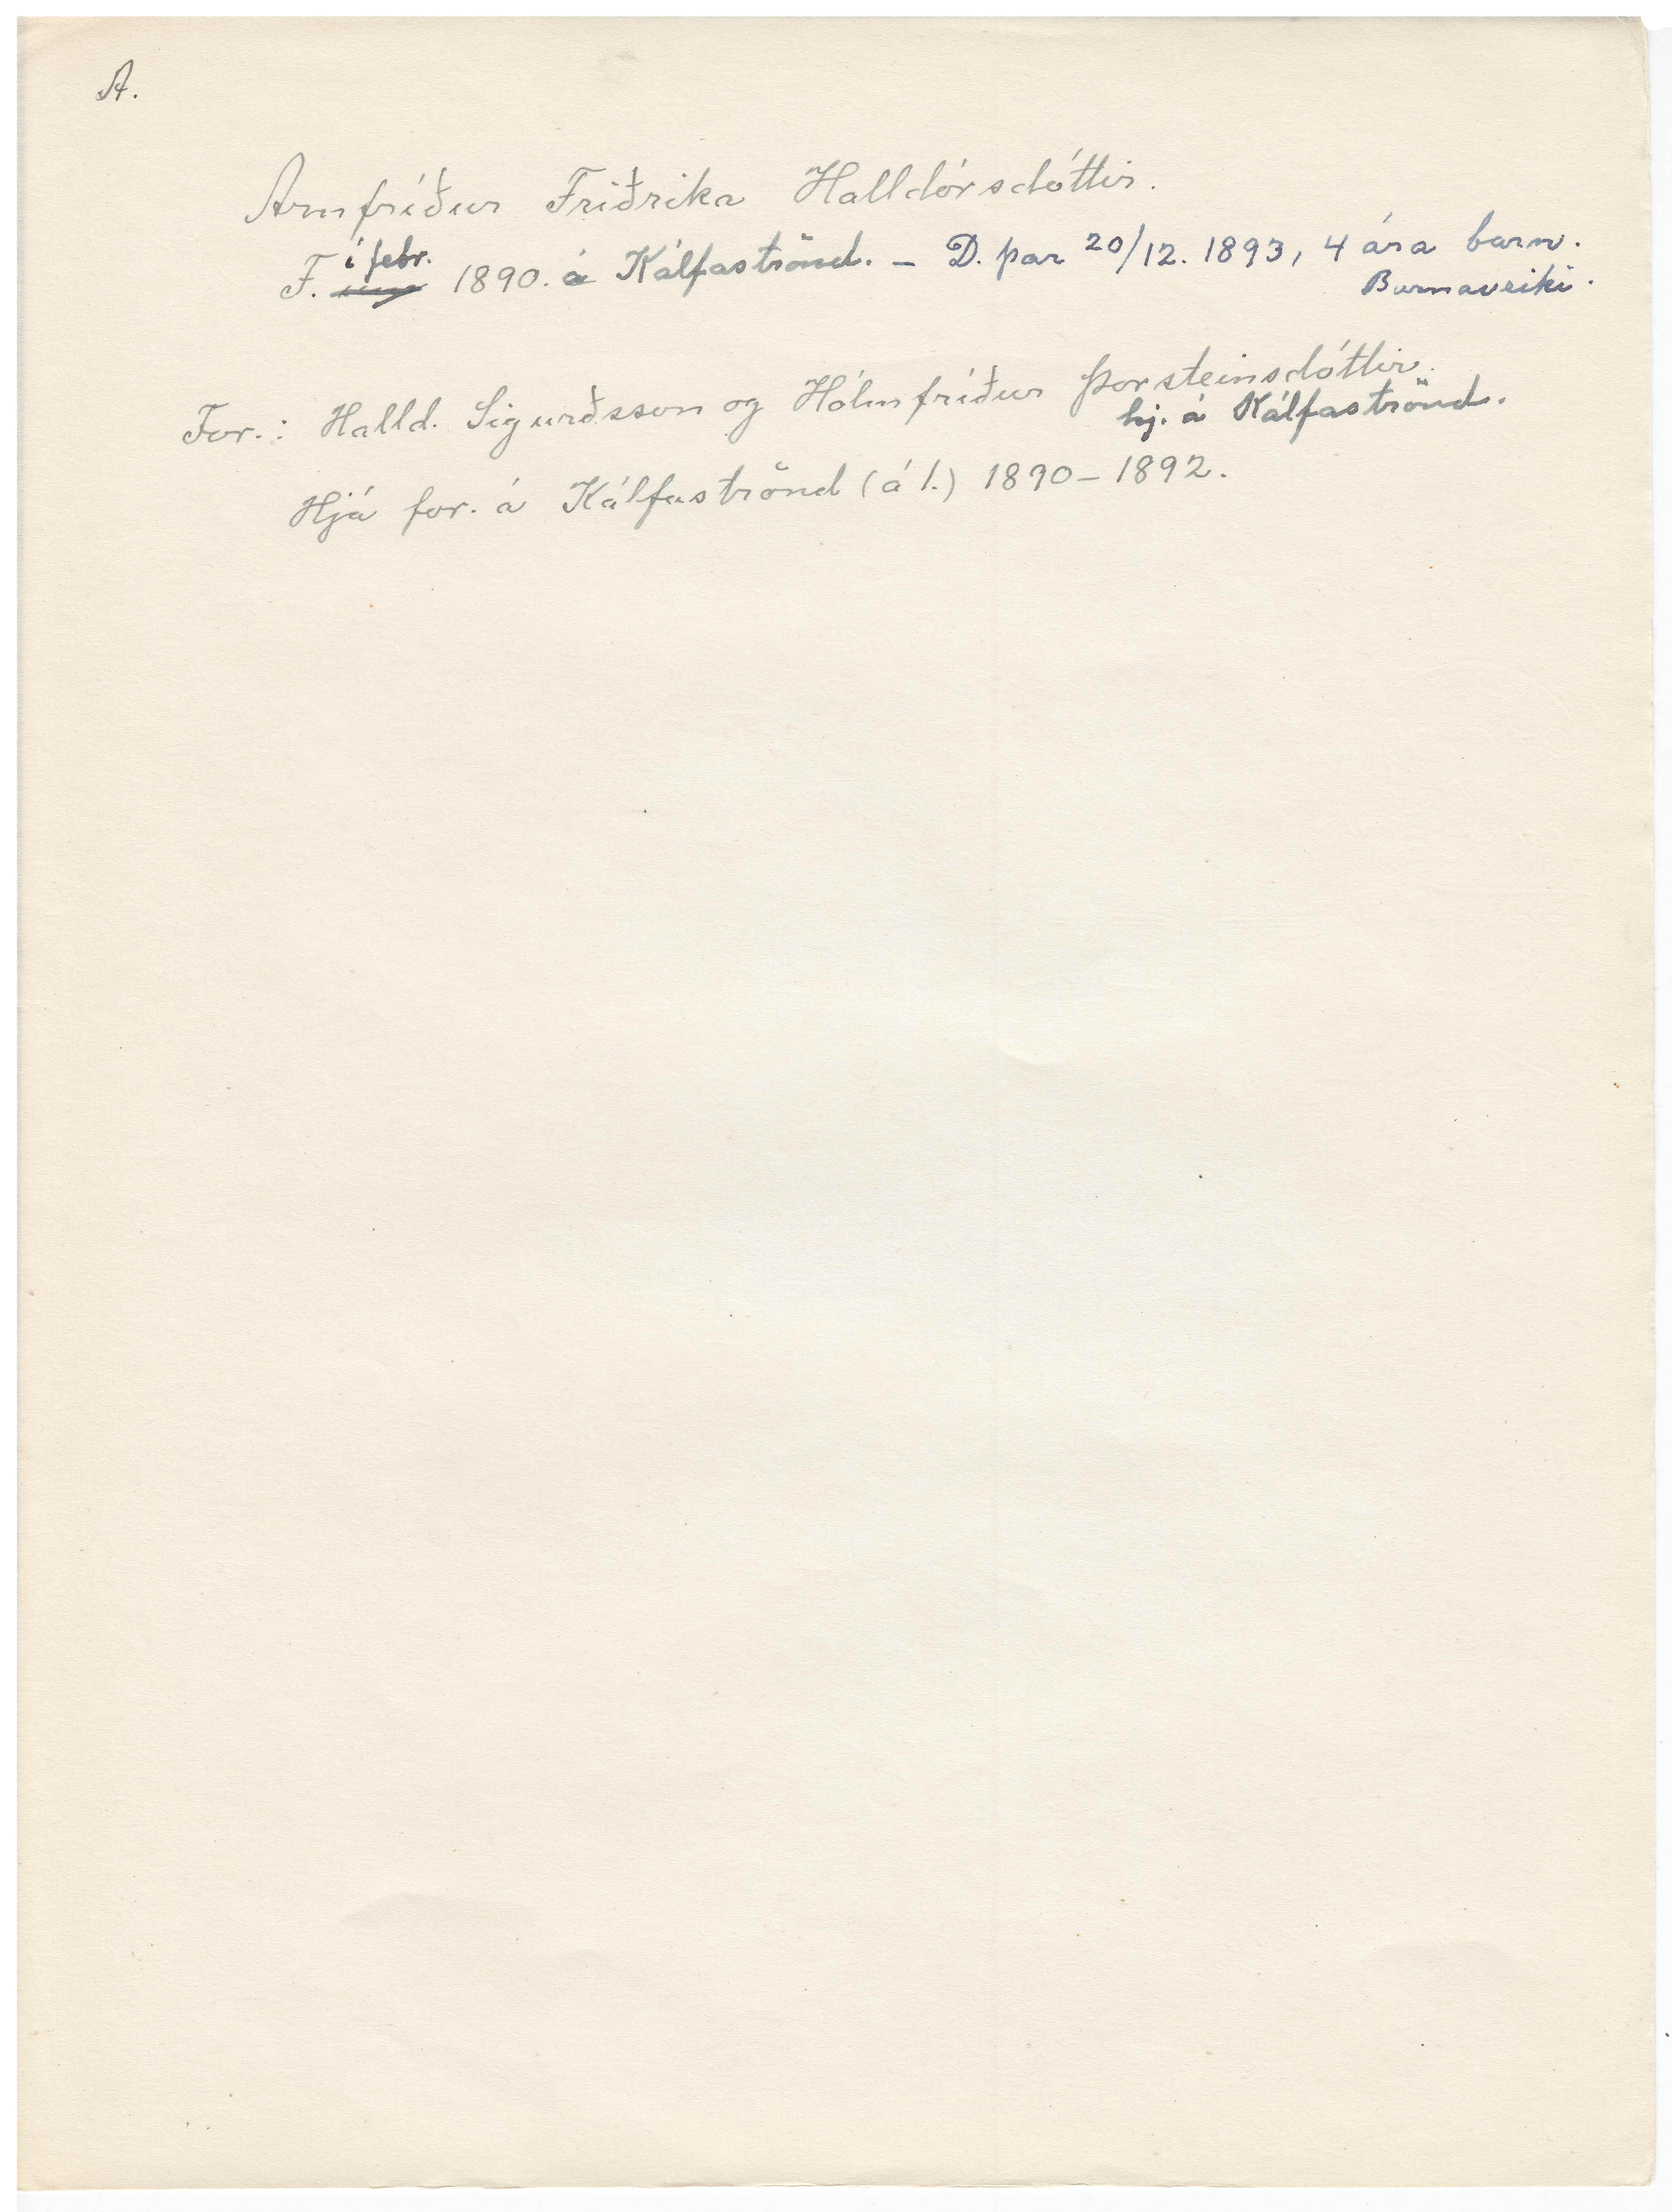 A.
Arnfríður Friðrika Halldórsdóttir.
í febr.
F. 1890. á Kálfaströnd. – D. þar 20/12. 1893, 4 ára barn.
Barnaveiki.
For.: Halld. Sigurðsson og Hólmfríður Þorsteinsdóttir.
hj. á Kálfaströnd.
Hjá for. á Kálfaströnd (á 1.) 1890–1892.